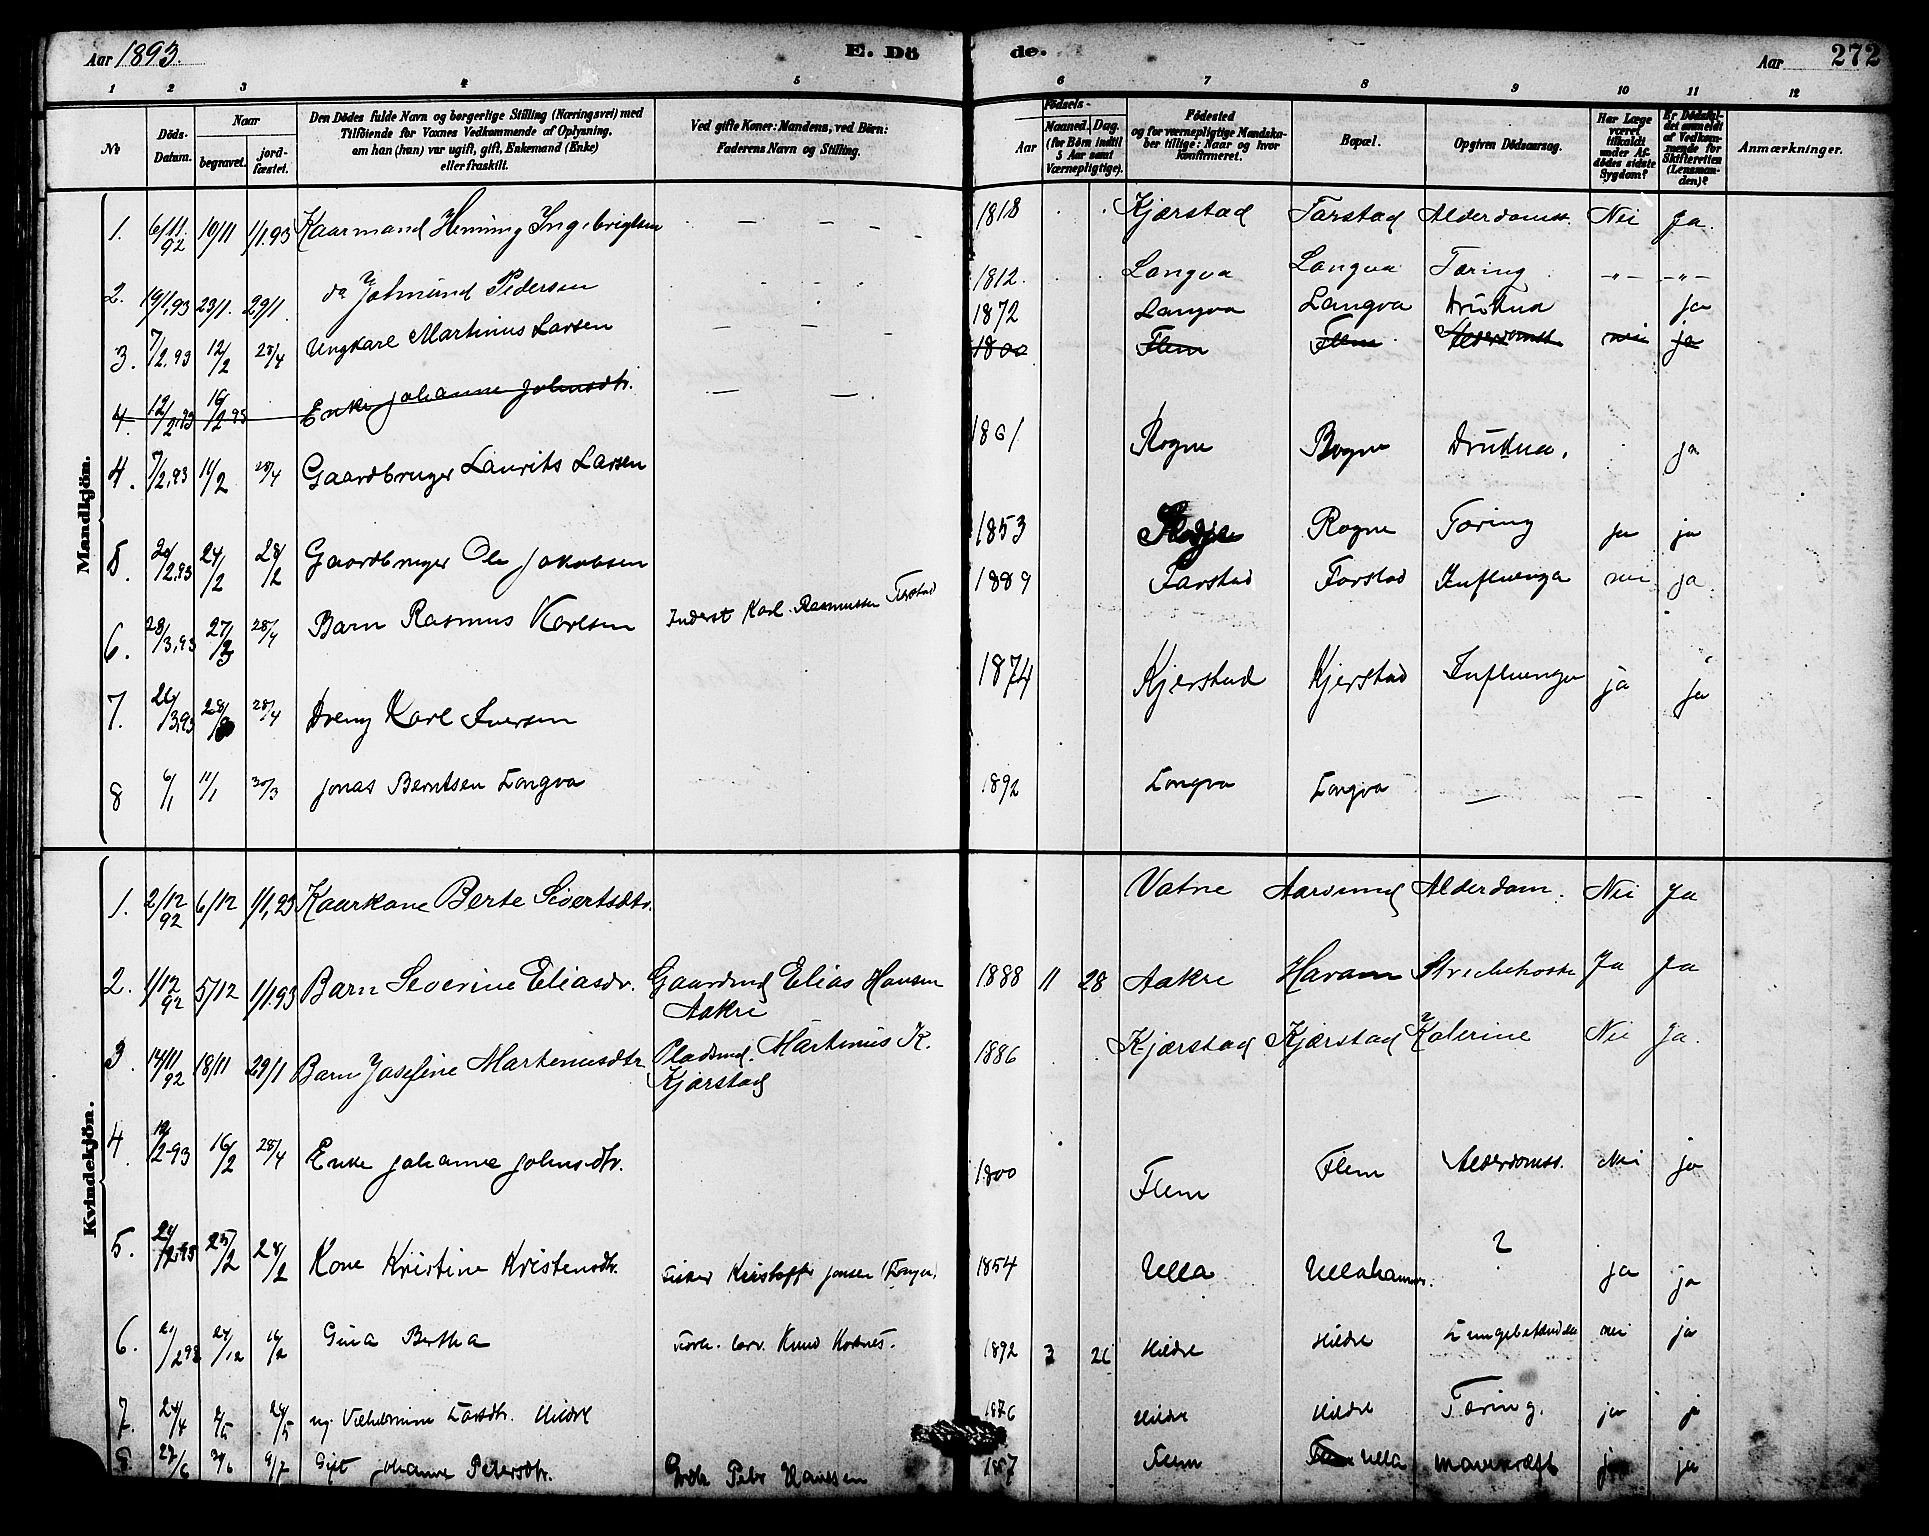 Aar 1893.
E. Dö
de.
Aar
272
1 2 3 4 5 6 7 8 9 10 11 12
No
Döds-Datum.
Naar
begravet.
jord-fæstet.
Den Dödes fulde Navn og borgerlige Stilling (Næringsvei) med
Tilföiende for Voxnes Vedkommende af Oplysning,
om han (hun) var ugift, gift, Enkemand (Enke)
eller fraskilt.
Ved gifte Koner: Mandens, ved Börn:
Faderens Navn og Stilling.
Födsels-
Aar
Maaned. Dag.
(for Börn indtil
5 Aar samt
Værnepligtige).
Födested
og for værnepligtige Mandska-
ber tillige: Naar og hvor
konfirmeret.
Bopæl.
Opgiven Dödsaarsag.
Har Læge
været
tilkaldt
under Af-
dödes sidste
Sygdom?
Er Dödsfal-
det anmeldt
af Vedkom-
mende for
Skifteretten
(Lensman-
den)?
Anmærkninger.
Mandkjön.
1. 6/11. 92 10/11 1/1.93 Kaarmand Henning Ingebrigtsen - - - 1818 Kjærstad Farstad Alderdomss. Nei Ja.
2. 19/1,93 23/1. 29/1. do Johnund Pedersen 1812. Longva Longva Tæring -"- -"-
3. 7/2.93 12/2 28/4 Ungkarl Martinus Larsen - - - 1872 Longva Longva Druknd ja
4. 12/2.93 16/2 93 Enke Johanne Johnsdtr. - - 1800 Flem Flem Alderdomss nei ja
4. 7/2,93 11/2 28/4 Gaardbruger Laurits Larsen 1861 Rogne Rogne Druknd. ja
5. 20/2.93 24/2 28/2 Gaardbruger Ole Jakobsen 1853 Rogne Tæring ja ja
6. 23/3,93 27/3 28/4 Barn Rasmus Karlsen Inderst Karl Rasmussen Farstad 1889 Farstad Farstad Influenza nei ja
7. 26/3,93 28/3 28/4 Dreng Karl Iversen 1874 Kjerstad Kjerstad Influenza ja ja
8 6/1 11/1 30/3 Jonas Berntsen Longva 1892 Longva Longva - -
Kvindekjön.
1. 2/12 92 6/12 1/1,93 Kaarkone Berte Sivertsdtr. Vatne Aarsund Alderdom. Nei Ja
2. 1/12 92 5/12 1/1.93 Barn Severine Eliasdr. Gaardmd Elias Hansen
Aakre 1888 11 28 Aakre Haram Strubehoste Ja Ja
3. 14/11 92 18/11 29/1 Barn Josefine Martinusdtr Pladsmd. Martinus K.
Kjærstad 1886 Kjærstad Kjærstad Nei Ja.
4. 12/2-93 16/2 28/4 Enke Johanne Johnsdtr. 1800 Flem Flem Alderdomss. Nei ja
5. 25/2 28/2 Kone Kristine Kristensdtr. Fisker Kristoffer Jonsen (Longva) 1854 Ulla Ullahammr. ? ja ja
6. Gina Bertha Knud 1892 3 26 Hildre Hildre Lungebetændelse nei ja
7. 24/4 2/5 24/5 ug. Vilhelmine Larsdtr. Hildre 1876 Hildre Hildre Tæring. ja ja
8 27/6 30/6 9/7 Gift Johanne Petersdtr. Grdbr Peter Hanssen 1857 Flem Flem Ulla mavekræft ja ja